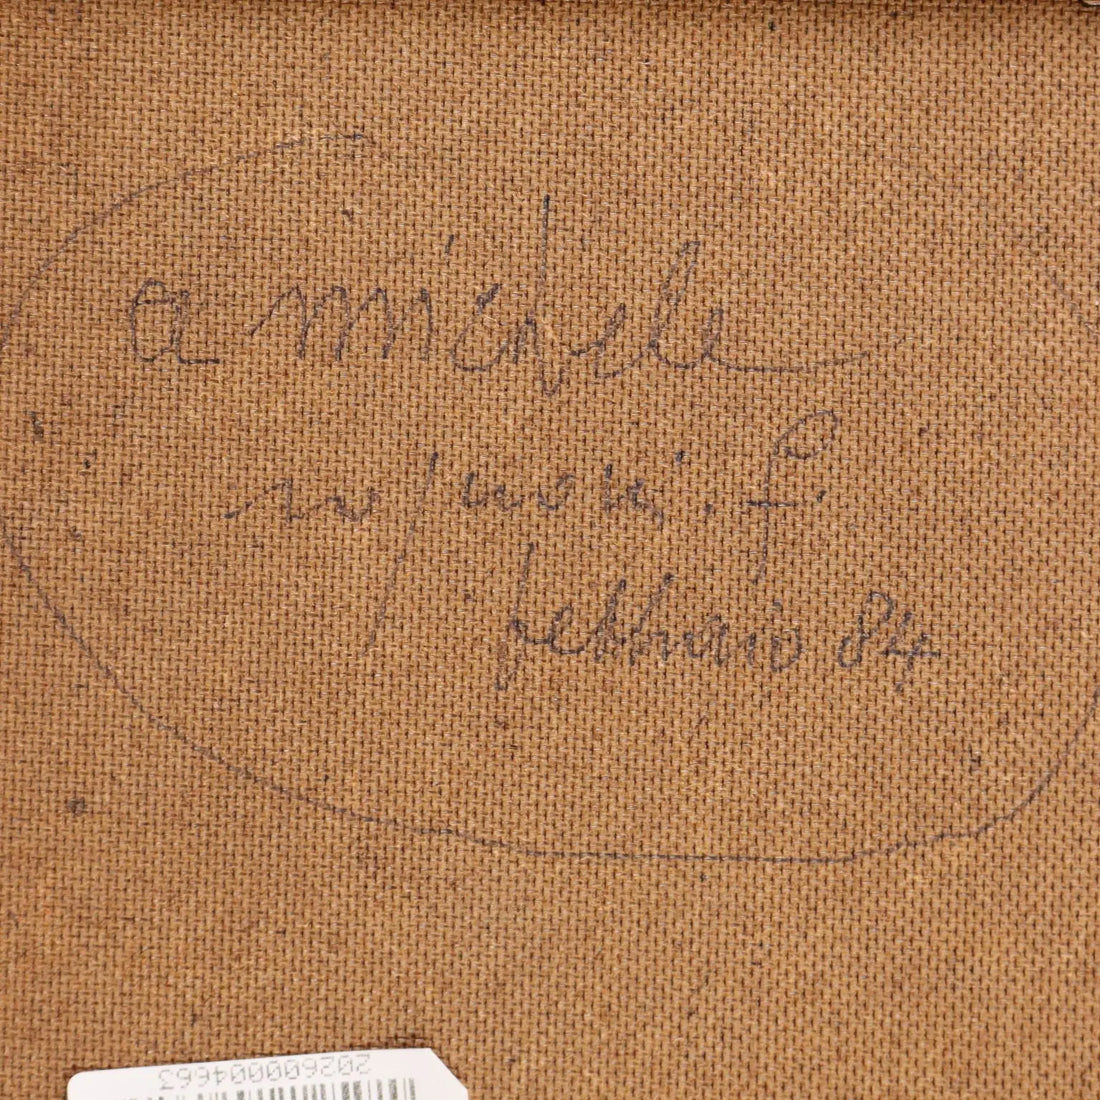 a michele
f.
febbraio 84
202600004663